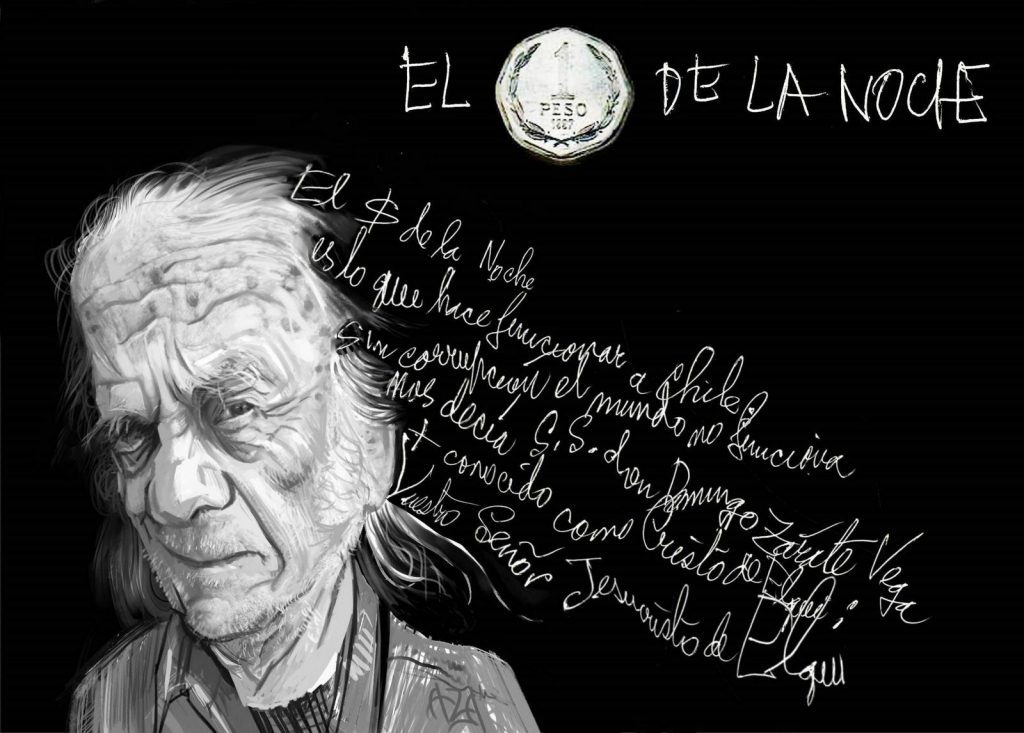 EL 1 PESO 1887 DE LA NOCHE
El $ de la Noche
es lo que hace funcionar a Chile!
Sin corrupción el mundo no funciona
nos decía S.S. don Domingo Zárate Vega
+ conocido como Cristo de Elqui:
Nuestro Señor Jesucristo de Elqui